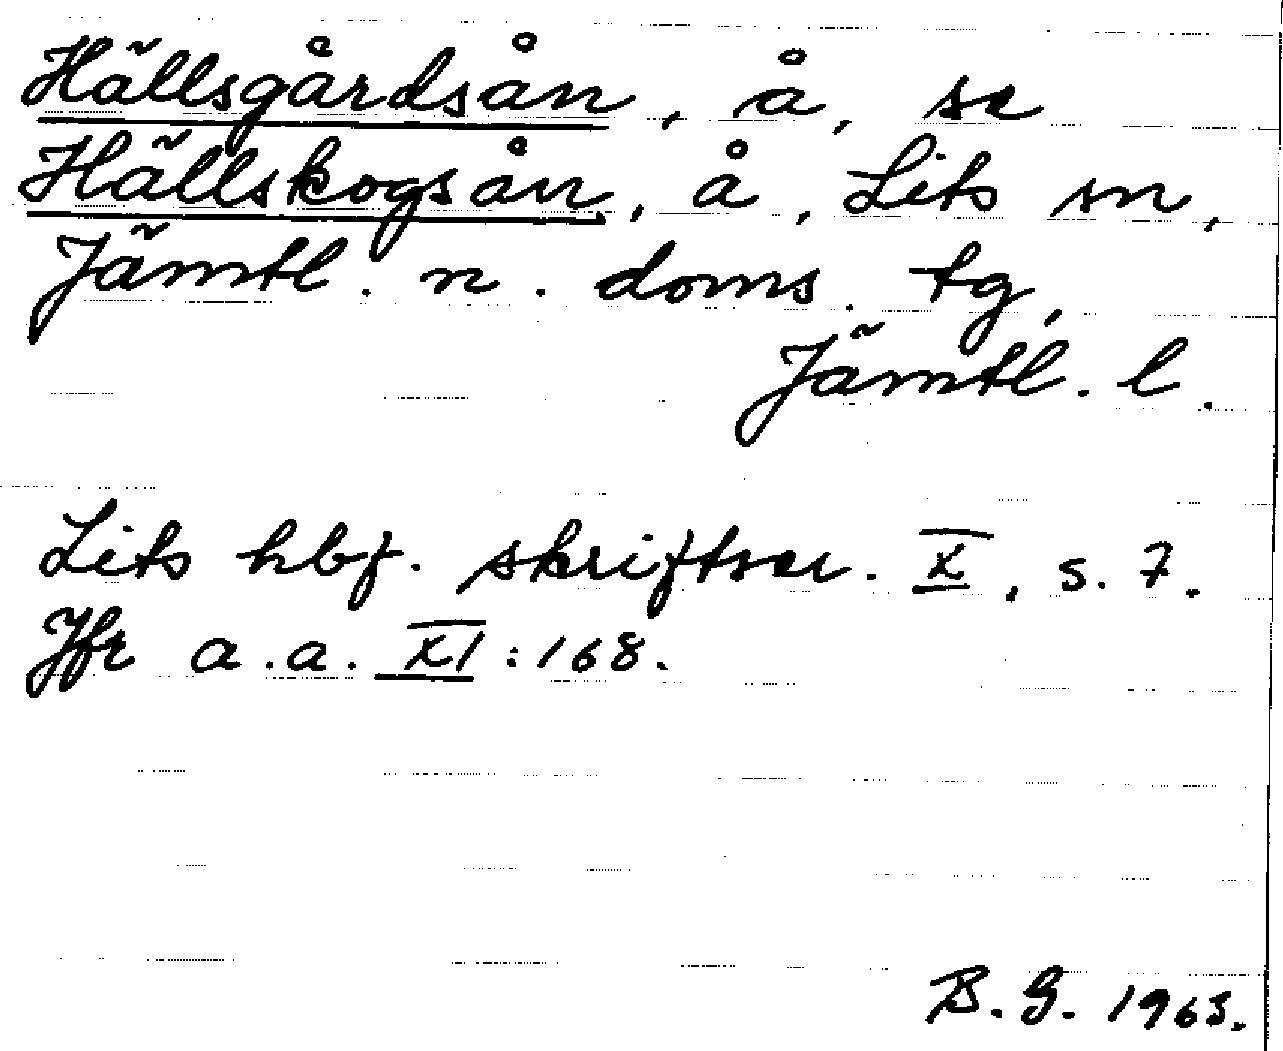 Hällsgårdsån, å, se
Hällskogsån, å, Lits sn,
Jämtl. n. doms. tg,
Jämtl. l.
Lits hbf. skriftser. X, s. 7.
Jfr a.a. XI:168.
B.G. 1963.